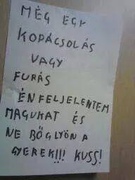 MÉG EGY
KOPÁCSOLÁS
VAGY
FURÁS
ÉN FELJELENTEM
MAGUKAT ÉS
NE BŐGJÖN A
GYEREK!!! KUSS!